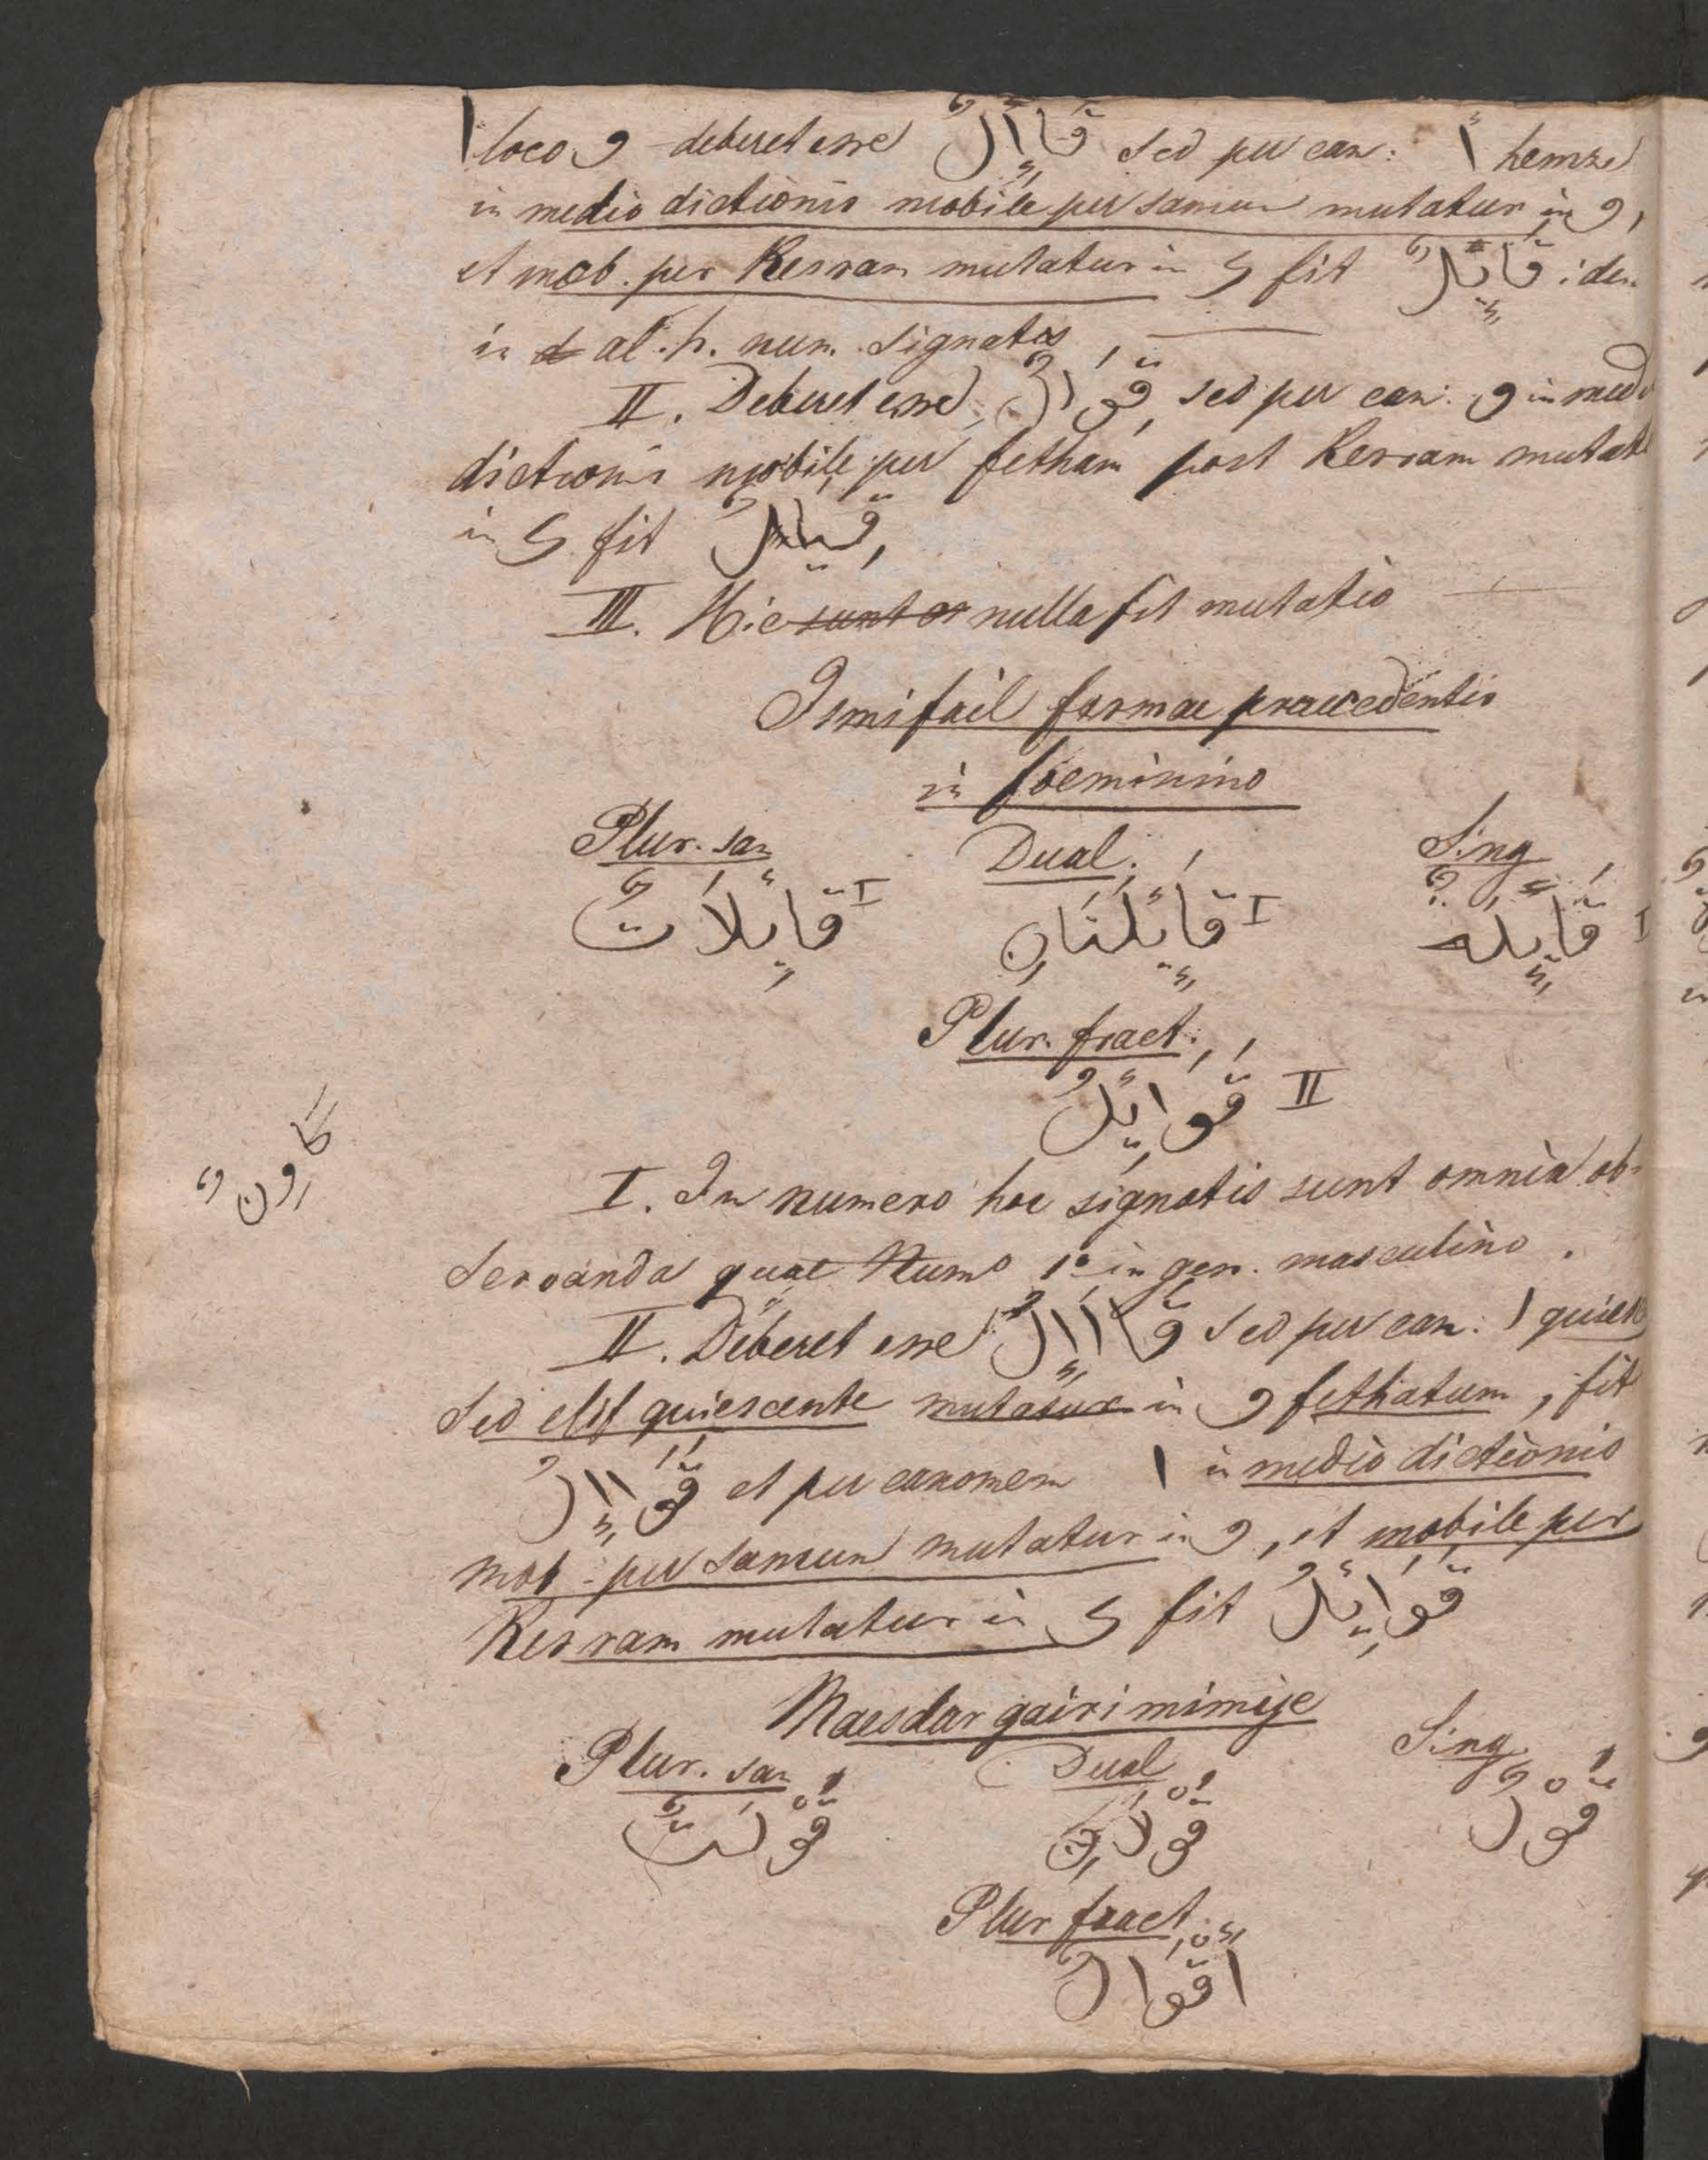 ا loco و deberet esse قَاإِلٌ sed per can: أ hemze
in medio dictionis mobile per samun mutatur in و,
et mob. per Kesram mutatur in ى fit قَائِلٌ iden
in al. h. num. signatis
II. Deberet esse قِوَالٌ, sed per can: و in med
dictionis mobile per fetham post Kesram mutat
in ى fit قِيَالٌ
III. Hic sunt nulla fit mutatio
Ismi fail formae praecedentis
in foeminino
Plur. san Dual. Sing
I قَائِلَاتٌ I قَائِلَتَانِ I قَائِلَةٌ
Plur. fract.
II قَوَائِلُ
كَاوِنٌ
I. In numero hoc signatis sunt omnia ob-
servanda quae Numo 1º in gen. masculino.
II. Deberet esse قَااإِلُ sed per can: ا quies
sed elif quiescente mutatur in و fethatum, fit
قَوَاإِلُ et per canonem ا in medio dictionis
mob. per samun mutatur in و, et mobile per
Kesram mutatur in ى fit قَوَائِلُ
Maesdar gairi mimije
Plur. san Dual Sing.
قَوْلَتٌ قَوْلَانِ قَوْلٌ
Plur fract.
أَقْوَالٌ